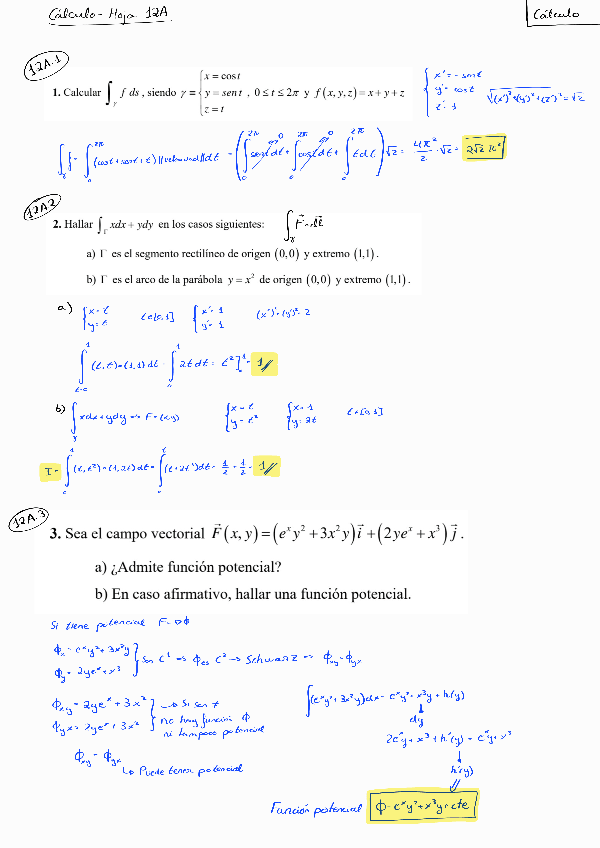 Cálculo - Hoja 12A
Cálculo
12A.1
1. Calcular ∫_γ f ds , siendo γ = { x = cos t y = sen t z = t , 0 ≤ t ≤ 2π y f(x,y,z) = x + y + z
{ x' = -sen t y' = cos t z' = 1 √((x')²+(y')²+(z')²) = √2
12A.2
2. Hallar ∫_Γ xdx + ydy en los casos siguientes:
a) Γ es el segmento rectilíneo de origen (0,0) y extremo (1,1).
b) Γ es el arco de la parábola y = x² de origen (0,0) y extremo (1,1).
a) { x = t y = t t∈[0,1] { x' = 1 y' = 1 (x')²+(y')² = 2
∫ (t,t)·(1,1) dt = ∫ 2t dt = t²] = 1
b) ∫ xdx + ydy → F = (x,y) { x = t y = t² { x = 1 y = 2t t∈[0,1]
12A.3
3. Sea el campo vectorial F⃗(x,y) = (eˣy² + 3x²y) i⃗ + (2yeˣ + x³) j⃗ .
a) ¿Admite función potencial?
b) En caso afirmativo, hallar una función potencial.
Si tiene potencial F = ∇ϕ
ϕx = eˣy² + 3x²y
ϕy = 2yeˣ + x³
Son C¹ → ϕ es C² → Schwarz → ϕxy = ϕyx
ϕxy = 2yeˣ + 3x²
ϕyx = 2yeˣ + 3x²
→ Si son ≠
no hay función ϕ
ni tampoco potencial
ϕxy = ϕyx
↳ Puede tener potencial
∫(eˣy² + 3x²y)dx = eˣy² + x³y + h(y)
dy
h(y)
Función potencial ϕ = eˣy² + x³y + cte